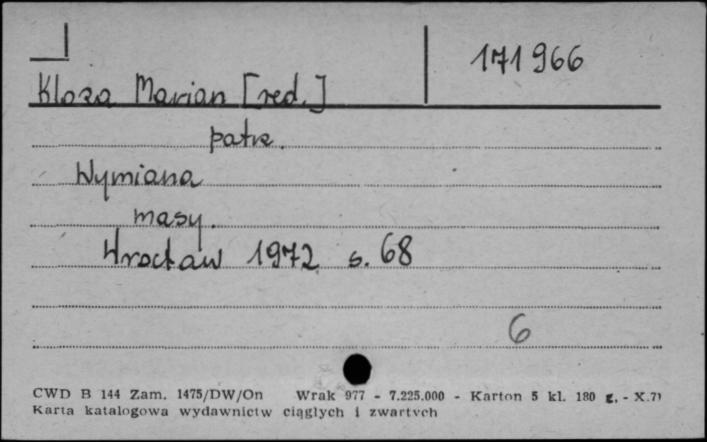 171966
Kloza Marian [red.]
patrz.
Wymiana
masy.
Wrocław 1972 s. 68
6
CWD B 144 Zam. 1475/DW/On Wrak 977 - 7.225.000 - Karton 5 kl. 180 g. - X.71
Karta katalogowa wydawnictw ciągłych i zwartych